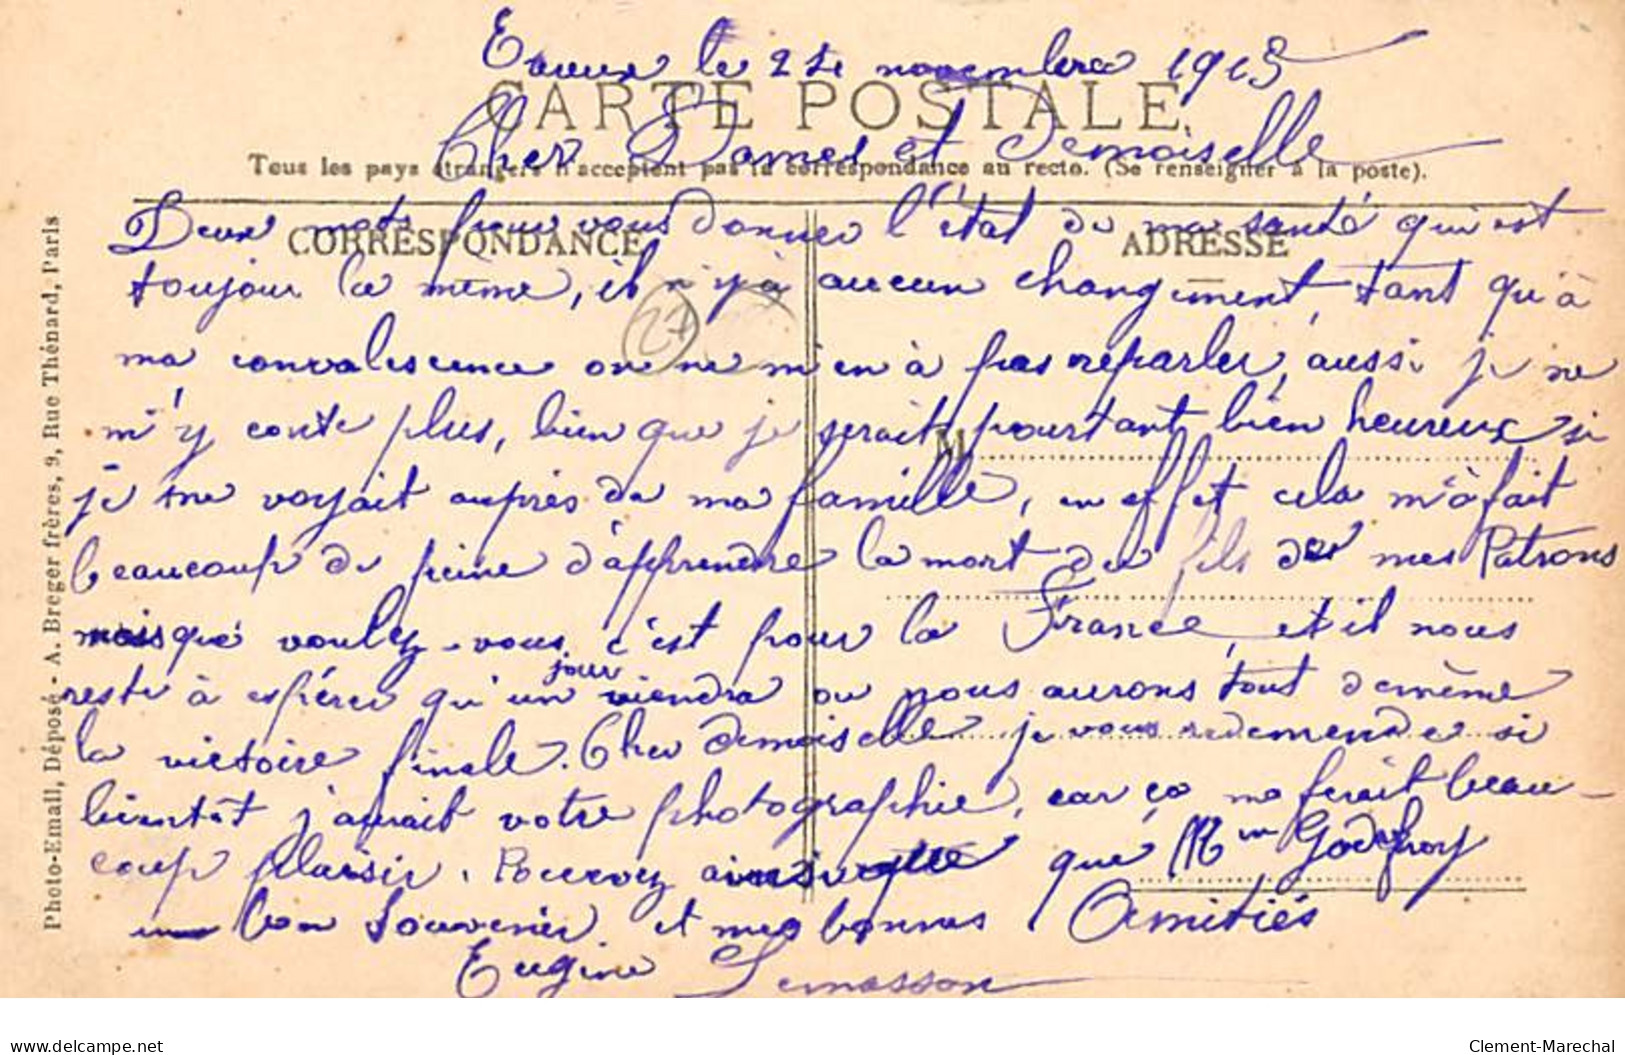 Evreux le 21 novembre 1915
CARTE POSTALE
Cher Dames et Demoiselle
Tous les pays étrangers n'acceptent pas la correspondance au recto. (Se renseigner à la poste).
Deux mots pour vous donner l'état de ma santé qui est
CORRESPONDANCE
ADRESSE
toujour la même, il n'y à aucun changement, tant qu'à
27
ma convalescence on ne m'en à pas reparler, aussi je ne
m'y conte plus, bien que je serait pourtant bien heureux si
M
je me voyait auprès de ma famille, en effet cela m'à fait
beaucoup de peine d'apprendre la mort du fils des mes Patrons
mais que voulez-vous c'est pour la France, et il nous
reste à espérer qu'un jour viendra ou nous aurons tout de même
la victoire finale. Cher demoiselle je vous redemende si
bientôt j'aurait votre photographie, car ça me ferait beau-
coup plaisir. Recevez ainsi que Mme Godefroy
un bon souvenir et mes bonnes Amitiés
Eugène Lemasson
Photo-Email, Déposé - A. Breger frères, 9, Rue Thénard, Paris
www.delcampe.net
Clement-Marechal